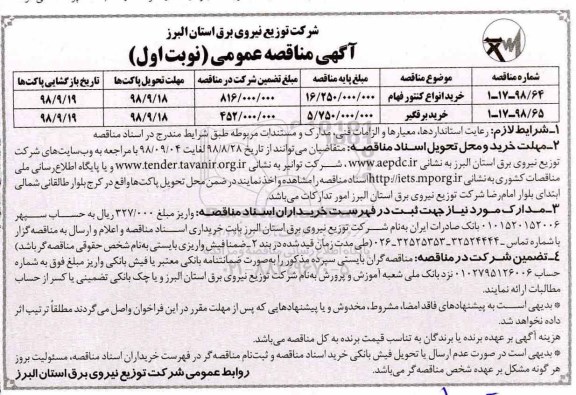 شرکت توزیع نیروی برق استان البرز
آگهی مناقصه عمومی (نوبت اول)
شماره مناقصه موضوع مناقصه مبلغ پایه مناقصه مبلغ تضمین شرکت در مناقصه مهلت تحویل پاکت‌ها تاریخ بازگشایی پاکت‌ها
۱-۱۷-۹۸/۶۴ خرید انواع کنتور فهام ۱۶/۲۵۰/۰۰۰/۰۰۰ ۸۱۶/۰۰۰/۰۰۰ ۹۸/۹/۱۸ ۹۸/۹/۱۹
۱-۱۷-۹۸/۶۵ خرید برقگیر ۵/۷۵۰/۰۰۰/۰۰۰ ۴۵۲/۰۰۰/۰۰۰ ۹۸/۹/۱۸ ۹۸/۹/۱۹
۱-شرایط لازم: رعایت استانداردها، معیارها و الزامات فنی، مدارک و مستندات مربوطه طبق شرایط مندرج در اسناد مناقصه
۲-مهلت خرید و محل تحویل اسناد مناقصه: متقاضیان می‌توانند از تاریخ ۹۸/۸/۲۸ لغایت ۹۸/۰۹/۰۴ با مراجعه به وب‌سایت‌های شرکت
توزیع نیروی برق استان البرز به نشانی www.aepdc.ir، شرکت توانیر به نشانی www.tender.tavanir.org.ir و یا پایگاه اطلاع‌رسانی ملی
مناقصات کشوری به نشانی http://iets.mporg.ir اسناد مناقصه را مشاهده و اخذ نمایند در ضمن محل تحویل پاکت‌ها واقع در کرج بلوار طالقانی شمالی
ابتدای بلوار امام رضا شرکت توزیع نیروی برق استان البرز امور تدارکات می‌باشد.
۳-مدارک مورد نیاز جهت ثبت در فهرست خریداران اسناد مناقصه: واریز مبلغ ۳۲۷/۰۰۰ ریال به حساب سپهر
۰۱۰۱۵۲۰۱۵۲۰۰۶ بانک صادرات ایران به‌نام شرکت توزیع نیروی برق استان البرز بابت خریداری اسناد مناقصه و اعلام و ارسال به مناقصه گزار
با شماره تماس ۳۲۵۲۴۴۴۴-۳۲۵۲۵۳۵۳-۰۲۶ (طی مدت زمان قید شده در بند ۲ ضمنا فیش واریزی بایستی به‌نام شخص حقوقی مناقصه گر باشد)
۴-تضمین شرکت در مناقصه: مناقصه گران بایستی سپرده مذکور را به‌صورت ضمانتنامه بانکی معتبر یا فیش بانکی واریز مبلغ فوق به شماره
حساب ۰۱۰۲۷۹۵۱۲۶۰۰۶ نزد بانک ملی شعبه آموزش و پرورش به‌نام شرکت توزیع نیروی برق استان البرز و یا چک بانکی تضمینی یا کسر از حساب
مطالبات ارائه نمایند.
* بدیهی است به پیشنهادهای فاقد امضا، مشروط، مخدوش و یا پیشنهادهایی که پس از مهلت مقرر در این فراخوان واصل می‌گردند مطلقاً ترتیب اثر
داده نخواهد شد.
هزینه آگهی بر عهده برنده یا برندگان به تناسب قیمت برنده به کل مناقصه می‌باشد.
* بدیهی است در صورت عدم ارسال یا تحویل فیش بانکی خرید اسناد مناقصه و ثبت‌نام مناقصه‌گر در فهرست خریداران اسناد مناقصه، مسئولیت بروز
هر گونه مشکل بر عهده شخص مناقصه‌گر می‌باشد.
روابط عمومی شرکت توزیع نیروی برق استان البرز